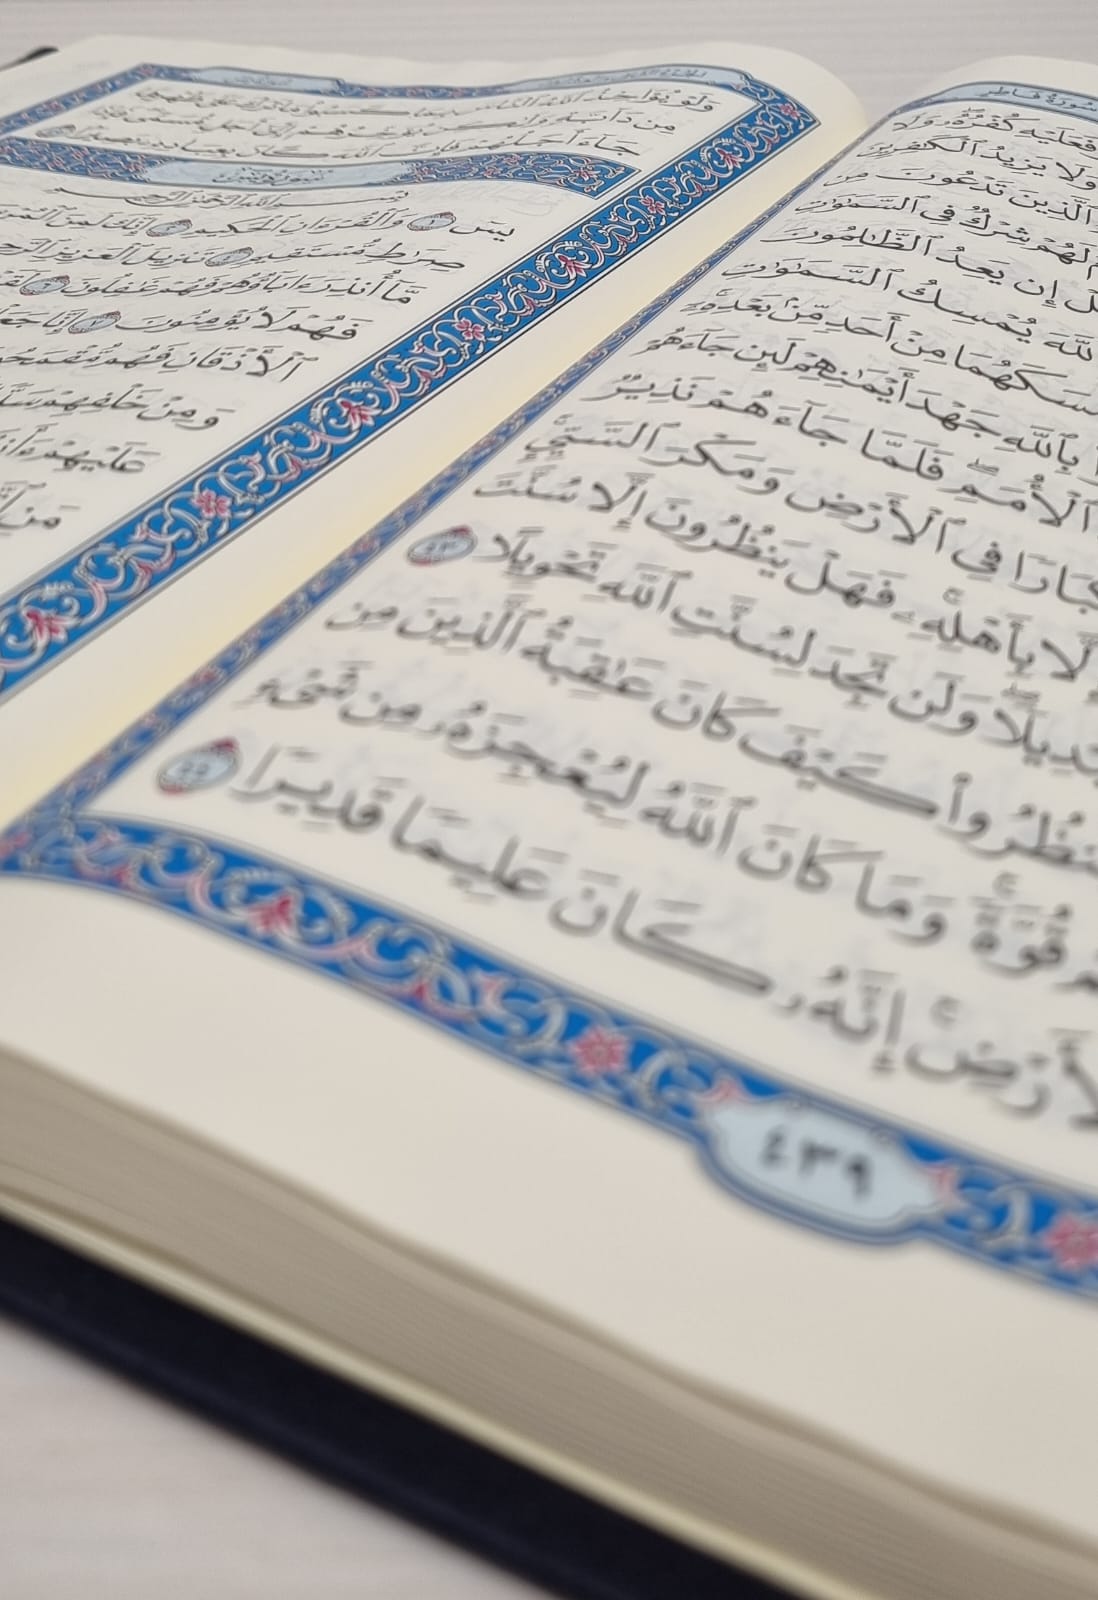 سُورَةُ فَاطِرٍ
فَعَلَيْهِ كُفْرُهُۥۖ وَلَا
وَلَا يَزِيدُ ٱلْكَٰفِرِينَ
ٱلَّذِينَ تَدْعُونَ مِن
لَهُمْ شِرْكٌ فِى ٱلسَّمَٰوَٰتِ
إِن يَعِدُ ٱلظَّٰلِمُونَ
ٱللَّهَ يُمْسِكُ ٱلسَّمَٰوَٰتِ
مِنْ أَحَدٍ مِّنۢ بَعْدِهِۦٓ
بِٱللَّهِ جَهْدَ أَيْمَٰنِهِمْ لَئِن جَآءَهُمْ
ٱلْأُمَمِۖ فَلَمَّا جَآءَهُمْ نَذِيرٌ
فِى ٱلْأَرْضِ وَمَكْرَ ٱلسَّيِّئِ
إِلَّا بِأَهْلِهِۦۚ فَهَلْ يَنظُرُونَ إِلَّا سُنَّتَ
وَلَن تَجِدَ لِسُنَّتِ ٱللَّهِ تَحْوِيلًا ٤٣
كَيْفَ كَانَ عَٰقِبَةُ ٱلَّذِينَ مِن
قُوَّةًۚ وَمَا كَانَ ٱللَّهُ لِيُعْجِزَهُۥ مِن شَىْءٍ
إِنَّهُۥ كَانَ عَلِيمًا قَدِيرًا ٤٤
٤٣٩
وَلَوْ يُؤَاخِذُ ٱللَّهُ ٱلنَّاسَ بِمَا كَسَبُوا۟ مَا تَرَكَ عَلَىٰ ظَهْرِهَا
مِن دَآبَّةٍ وَلَٰكِن يُؤَخِّرُهُمْ إِلَىٰٓ أَجَلٍ مُّسَمًّىۖ فَإِذَا
جَآءَ أَجَلُهُمْ فَإِنَّ ٱللَّهَ كَانَ بِعِبَادِهِۦ بَصِيرًۢا
بِسْمِ ٱللَّهِ ٱلرَّحْمَٰنِ ٱلرَّحِيمِ
يسٓ ١ وَٱلْقُرْءَانِ ٱلْحَكِيمِ ٢ إِنَّكَ لَمِنَ
صِرَٰطٍ مُّسْتَقِيمٍ ٤ تَنزِيلَ ٱلْعَزِيزِ
مَّآ أُنذِرَ ءَابَآؤُهُمْ فَهُمْ غَٰفِلُونَ ٦
فَهُمْ لَا يُؤْمِنُونَ ٧ إِنَّا
ٱلْأَذْقَانِ فَهُم
وَمِنْ خَلْفِهِمْ
عَلَيْهِمْ